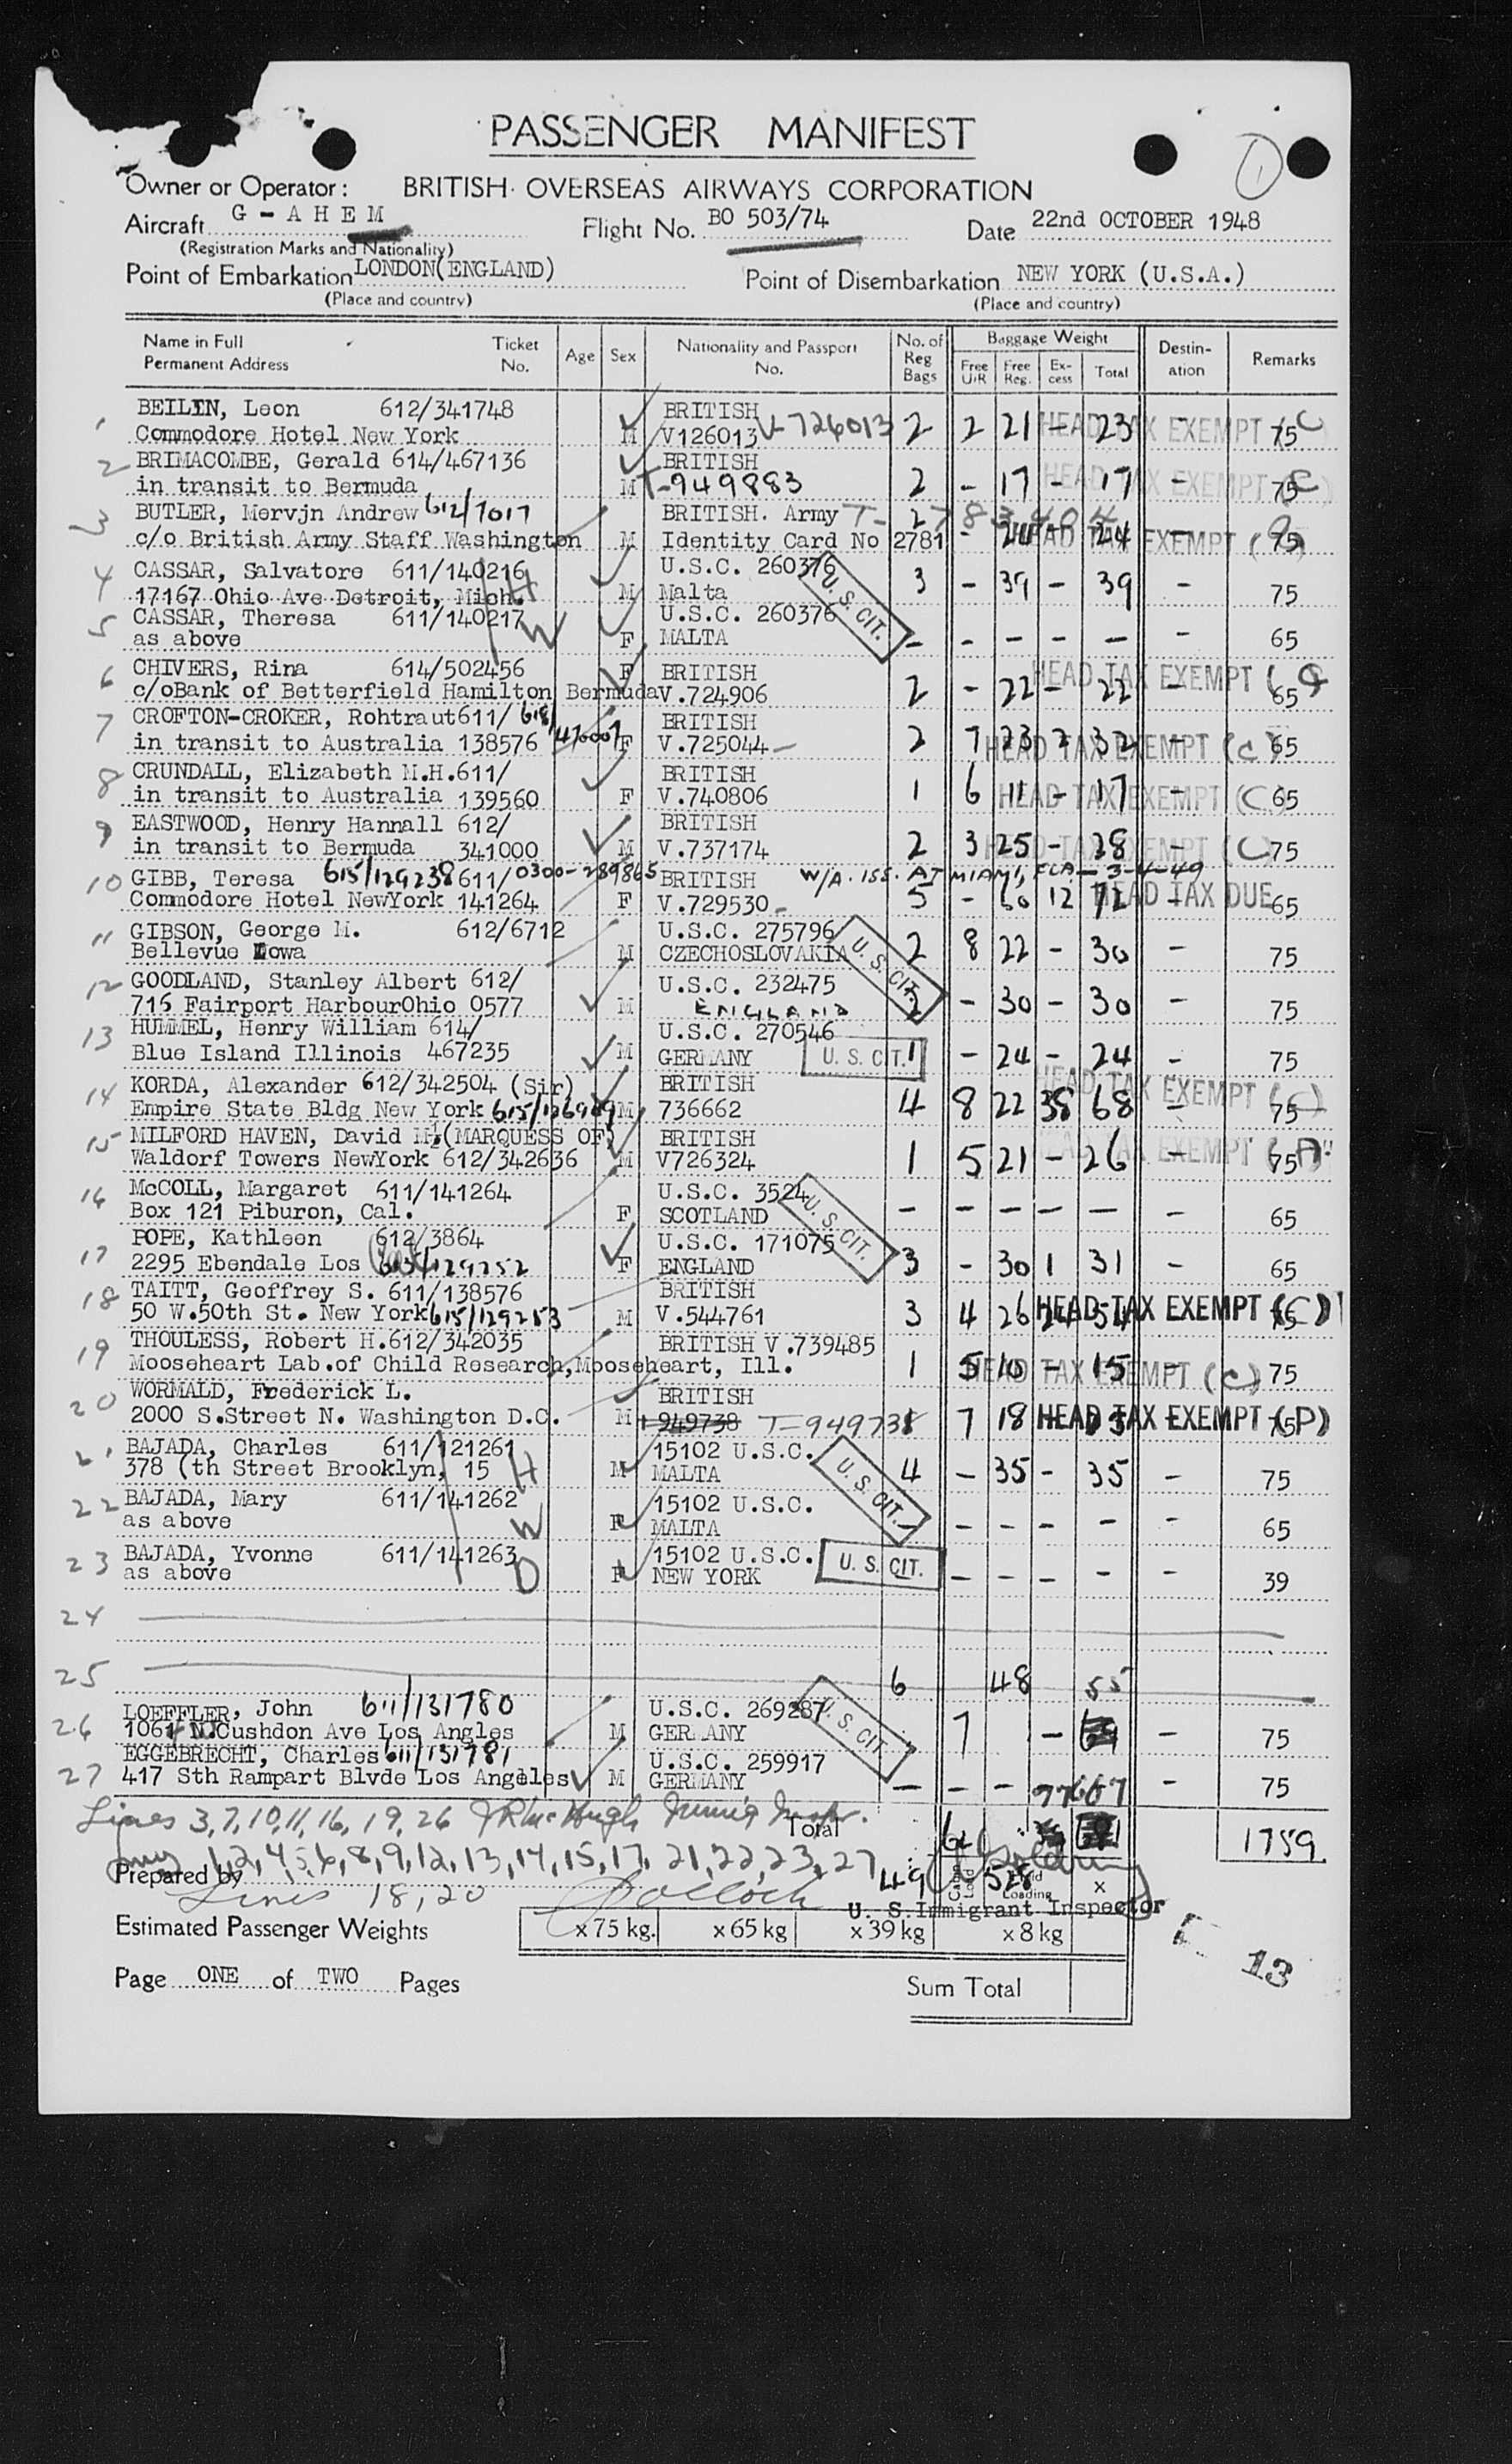 PASSENGER MANIFEST
1
Owner or Operator: BRITISH OVERSEAS AIRWAYS CORPORATION
Aircraft G - A H E M Flight No. BO 503/74 Date 22nd OCTOBER 1948
(Registration Marks and Nationality)
Point of Embarkation LONDON(ENGLAND) Point of Disembarkation NEW YORK (U.S.A.)
(Place and country) (Place and country)
Name in Full Permanent Address Ticket No. Age Sex Nationality and Passport No. No. of Reg Bags Baggage Weight Free U/R Free Reg. Ex-cess Total Destin-ation Remarks
1 BEILIN, Leon 612/341748 BRITISH
Commodore Hotel New York M V126013 V-726013 2 2 21 - 23 - HEAD TAX EXEMPT (C) 75
2 BRIMACOMBE, Gerald 614/467136 BRITISH
in transit to Bermuda M T-949883 2 - 17 - 17 - HEAD TAX EXEMPT (C) 75
3 BUTLER, Mervjn Andrew 612/7017 BRITISH. Army
c/o British Army Staff Washington M Identity Card No 2781 - 24 24 - HEAD TAX EXEMPT 75
4 CASSAR, Salvatore 611/140216 H U.S.C. 260376
17167 Ohio Ave Detroit, Mich. M Malta U. S. CIT. 3 - 39 - 39 - 75
5 CASSAR, Theresa 611/140217 W U.S.C. 260376
as above F MALTA - - - - - - 65
6 CHIVERS, Rina 614/502456 F BRITISH
c/oBank of Betterfield Hamilton Bermuda V.724906 2 - 22 - 22 - HEAD TAX EXEMPT 65
7 CROFTON-CROKER, Rohtraut611/ BRITISH
in transit to Australia 138576 F V.725044 2 7 23 2 32 - HEAD TAX EXEMPT (C) 65
8 CRUNDALL, Elizabeth M.H.611/ BRITISH
in transit to Australia 139560 F V.740806 1 6 11 - 17 - HEAD TAX EXEMPT (C) 65
9 EASTWOOD, Henry Hannall 612/ BRITISH
in transit to Bermuda 341000 M V.737174 2 3 25 - 28 - HEAD TAX EXEMPT (C) 75
10 GIBB, Teresa 615/129238 611/ 0300-289865 BRITISH W/A. ISS. AT MIAMI, FLA - 3-4-49
Commodore Hotel NewYork 141264 F V.729530 5 - 60 12 72 - HEAD TAX DUE 65
11 GIBSON, George M. 612/6712 U.S.C. 275796
Bellevue Iowa M CZECHOSLOVAKIA U. S. CIT. 2 8 22 - 30 - 75
12 GOODLAND, Stanley Albert 612/ U.S.C. 232475
716 Fairport HarbourOhio 0577 M ENGLAND - 30 - 30 - 75
13 HUMMEL, Henry William 614/ U.S.C. 270546
Blue Island Illinois 467235 M GERMANY U. S. CIT. 1 - 24 - 24 - 75
14 KORDA, Alexander 612/342504 (Sir) BRITISH
Empire State Bldg New York M 736662 4 8 22 38 68 - HEAD TAX EXEMPT (C) 75
15 MILFORD HAVEN, David M.(MARQUESS OF) BRITISH
Waldorf Towers NewYork 612/342636 M V726324 1 5 21 - 26 - EXEMPT (A) 75
16 McCOLL, Margaret 611/141264 U.S.C. 3524
Box 121 Piburon, Cal. F SCOTLAND U. S. CIT. - - - - - - 65
17 POPE, Kathleen 612/3864 U.S.C. 171075
2295 Ebendale Los 615/129252 F ENGLAND 3 - 30 1 31 - 65
18 TAITT, Geoffrey S. 611/138576 BRITISH
50 W.50th St. New York 615/129253 M V.544761 3 4 26 HEAD TAX EXEMPT (C) 75
19 THOULESS, Robert H.612/342035 BRITISH V.739485
Mooseheart Lab.of Child Research,Mooseheart, Ill. 1 5 10 - 15 - HEAD TAX EXEMPT (C) 75
20 WORMALD, Frederick L. BRITISH
2000 S.Street N. Washington D.C. M 949738 T-949738 1 7 18 - HEAD TAX EXEMPT (P) 75
21 BAJADA, Charles 611/121261 H 15102 U.S.C.
378 (th Street Brooklyn, 15 M MALTA U. S. CIT. 4 - 35 - 35 - 75
22 BAJADA, Mary 611/141262 W 15102 U.S.C.
as above F MALTA - - - - - - 65
23 BAJADA, Yvonne 611/141263 D 15102 U.S.C.
as above F NEW YORK U. S. CIT. - - - - - - 39
24
25 6 48 55
26 LOEFFLER, John 611/131780 U.S.C. 269287
1061 N.Cushdon Ave Los Angles M GERMANY U. S. CIT. 7 - - 75
27 EGGEBRECHT, Charles 611/131781 U.S.C. 259917
417 Sth Rampart Blvde Los Angeles M GERMANY - - - - 75
Lines 3, 7, 10, 11, 16, 19, 26 Total 1759
1, 2, 4, 5, 6, 8, 9, 12, 13, 14, 15, 17, 21, 22, 23, 27
Prepared by Lines 18, 20 49 528 Loading x
U. S. Immigrant Inspector
Estimated Passenger Weights x 75 kg. x 65 kg x 39 kg x 8 kg
13
Page ONE of TWO Pages Sum Total